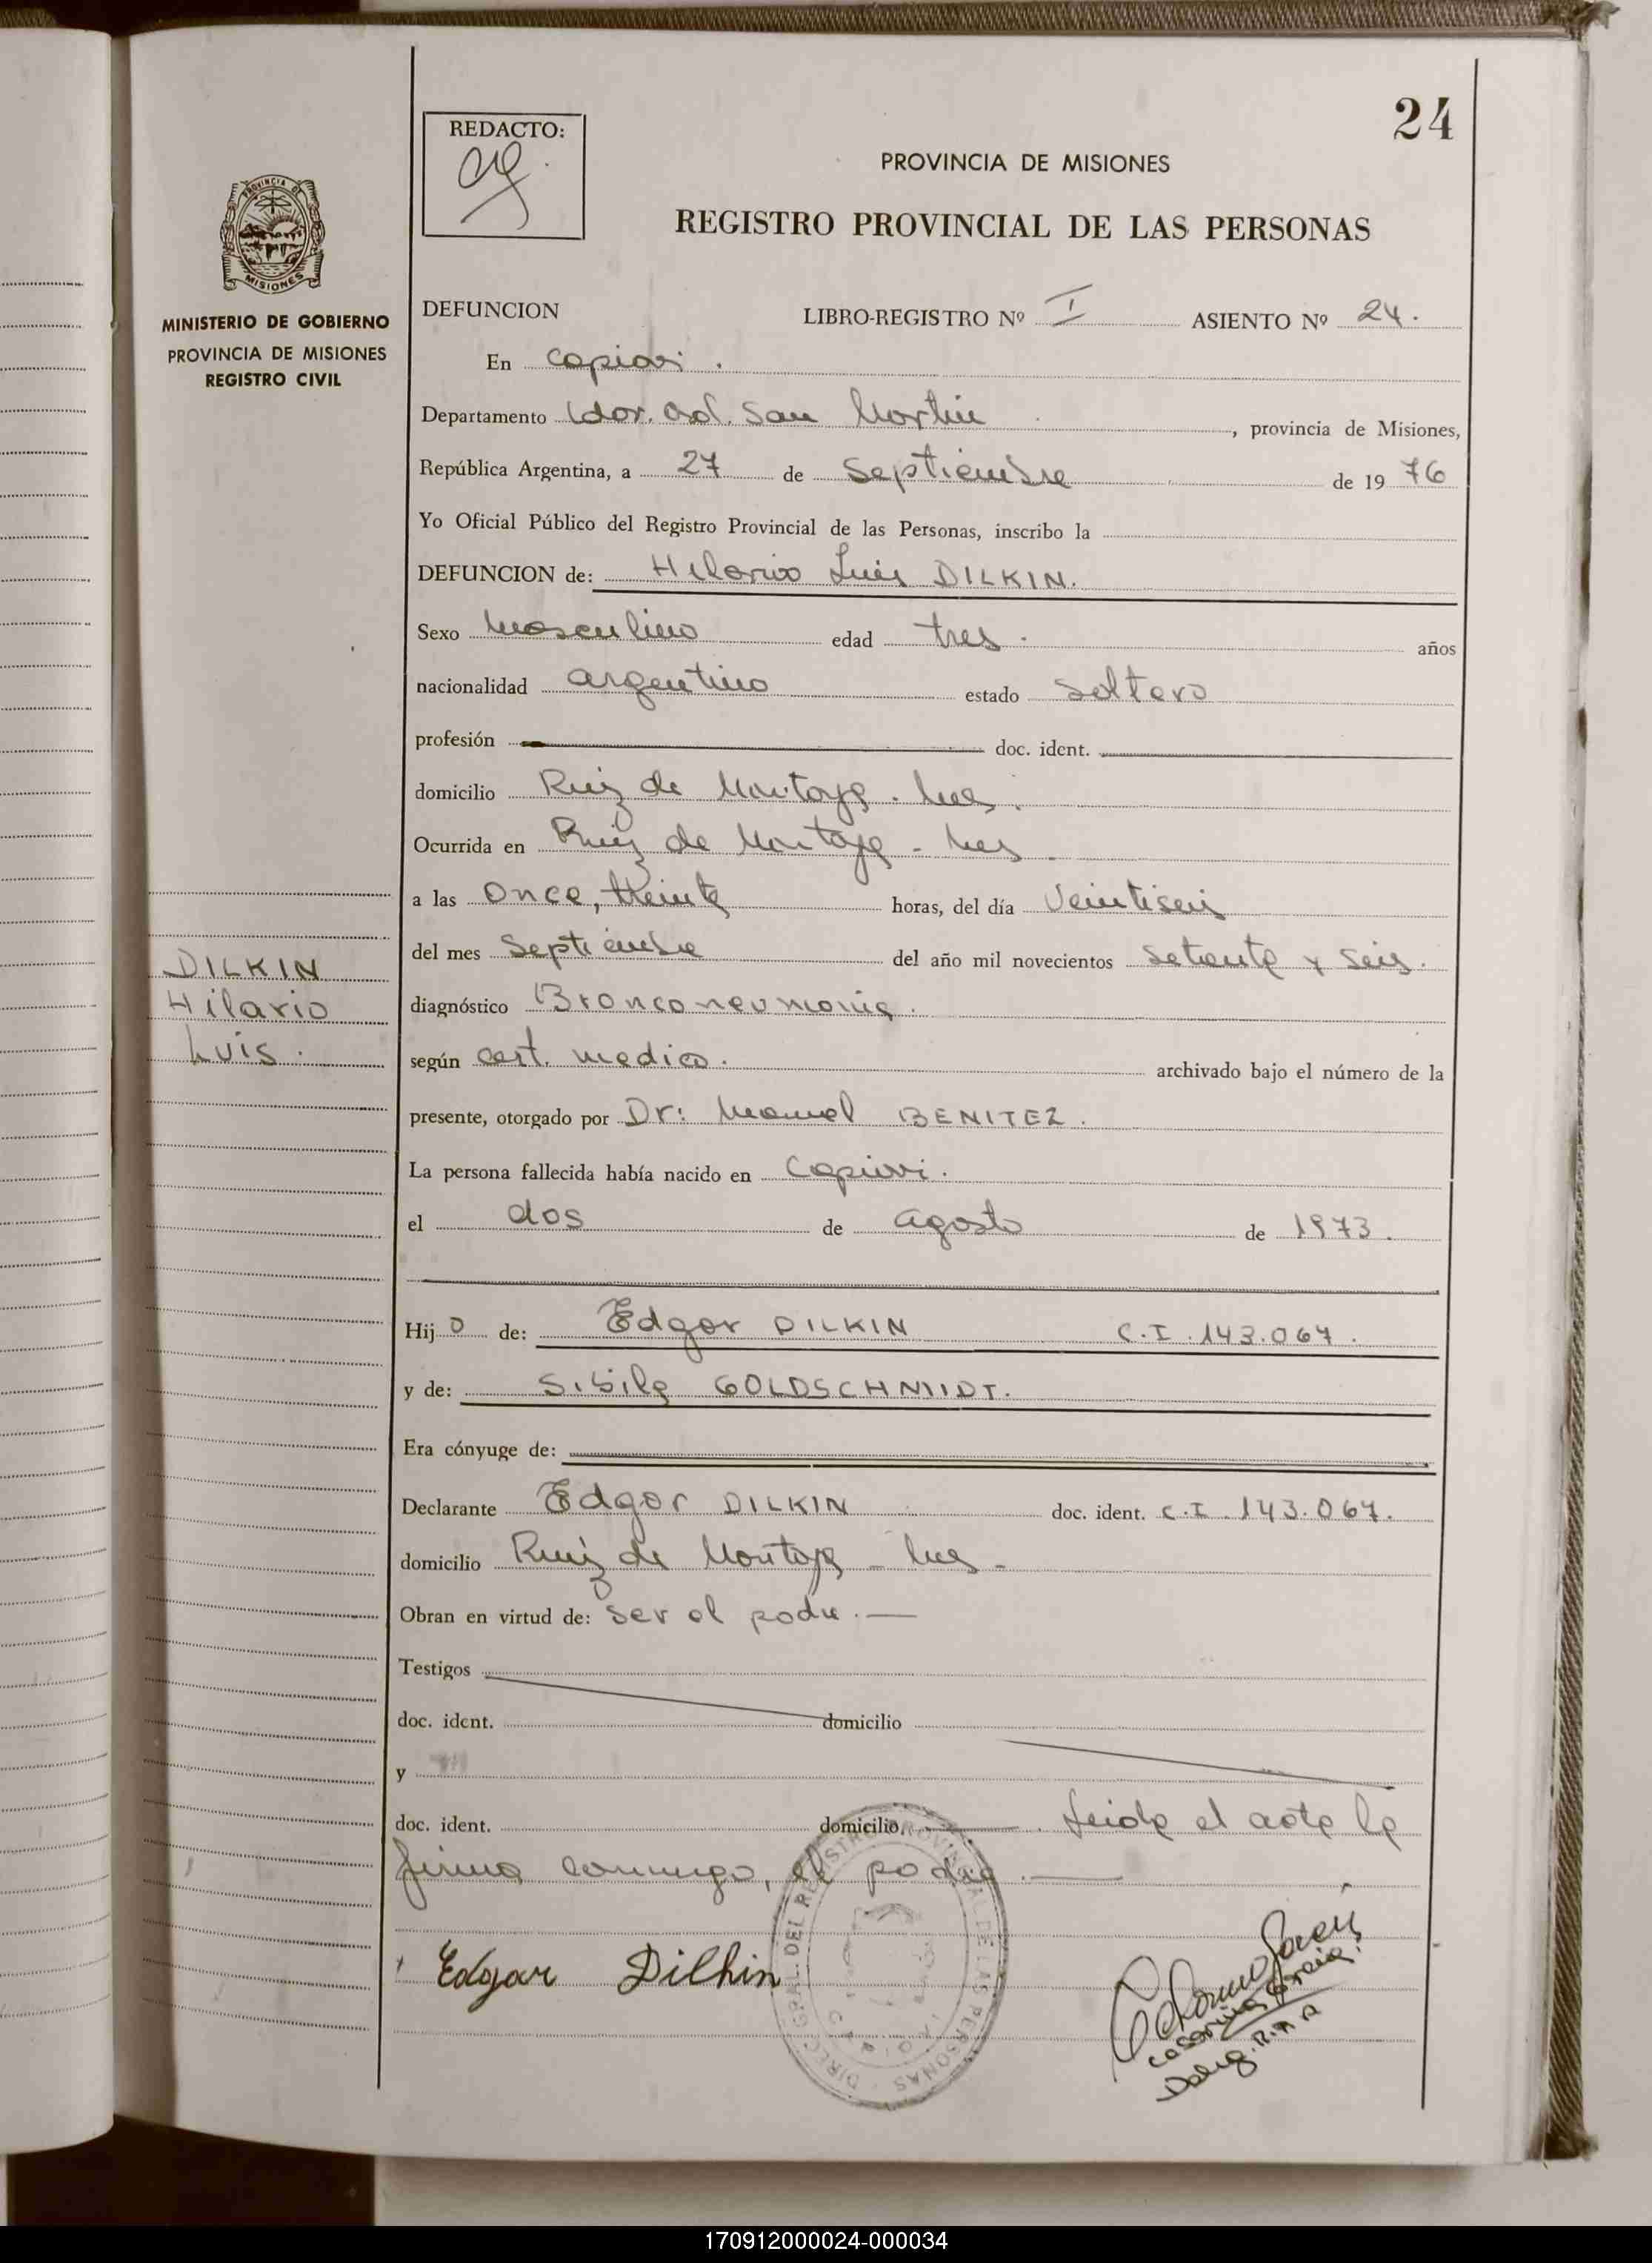 24
REDACTO:
PROVINCIA DE MISIONES
REGISTRO PROVINCIAL DE LAS PERSONAS
PROVINCIA DE
MISIONES
MINISTERIO DE GOBIERNO
PROVINCIA DE MISIONES
REGISTRO CIVIL
DEFUNCION LIBRO-REGISTRO Nº I ASIENTO Nº 24.
En Capiovi.
Departamento Ldor. Gral. San Martin, provincia de Misiones,
República Argentina, a 27 de Septiembre de 1976
Yo Oficial Público del Registro Provincial de las Personas, inscribo la
DEFUNCION de: Hilario Luis DILKIN.
Sexo Masculino edad tres. años
nacionalidad argentino estado Soltero
profesión doc. ident.
domicilio Ruiz de Montoya. Mes.
Ocurrida en Ruiz de Montoya - Mes.
a las Once, treinta horas, del día Veintiseis
del mes Septiembre del año mil novecientos Setenta y Seis.
DILKIN
Hilario
Luis.
diagnóstico Bronconeumonia.
según cert. medico. archivado bajo el número de la
presente, otorgado por Dr: Manuel BENITEZ.
La persona fallecida había nacido en Capiovi.
el dos de agosto de 1973.
Hijo de: Edgar DILKIN C.I. 143.067.
y de: Sibila GOLDSCHMIDT.
Era cónyuge de:
Declarante Edgar DILKIN doc. ident. C.I. 143.067.
domicilio Ruiz de Montoya - Mes -
Obran en virtud de: Ser el padre.—
Testigos
doc. ident. domicilio
y
doc. ident. domicilio. Leida el acta la
firma conmigo, el padre.—
Edgar Dilkin
DIREC. GRAL. DEL REGISTRO PROVINCIAL DE LAS PERSONAS
170912000024-000034